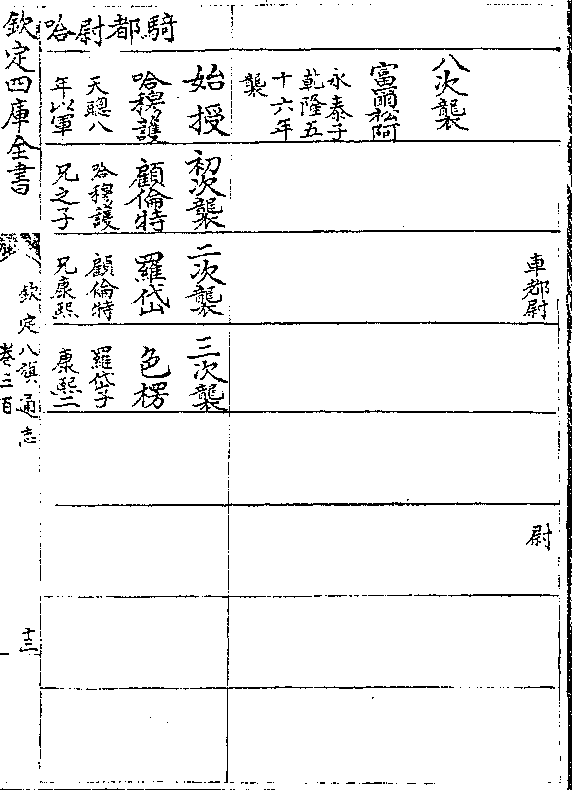 車都尉
尉
八次襲
富爾松阿
永泰子
乾隆五
十六年
襲
騎都尉哈
始授
哈穆護
天聰八
年以軍
初次襲
顧倫特
哈穆護
兄之子
二次襲
羅岱
顧倫特
兄康熙
三次襲
色楞
羅岱子
康熙二
欽定四庫全書
欽定八旗通志
卷三百
十三